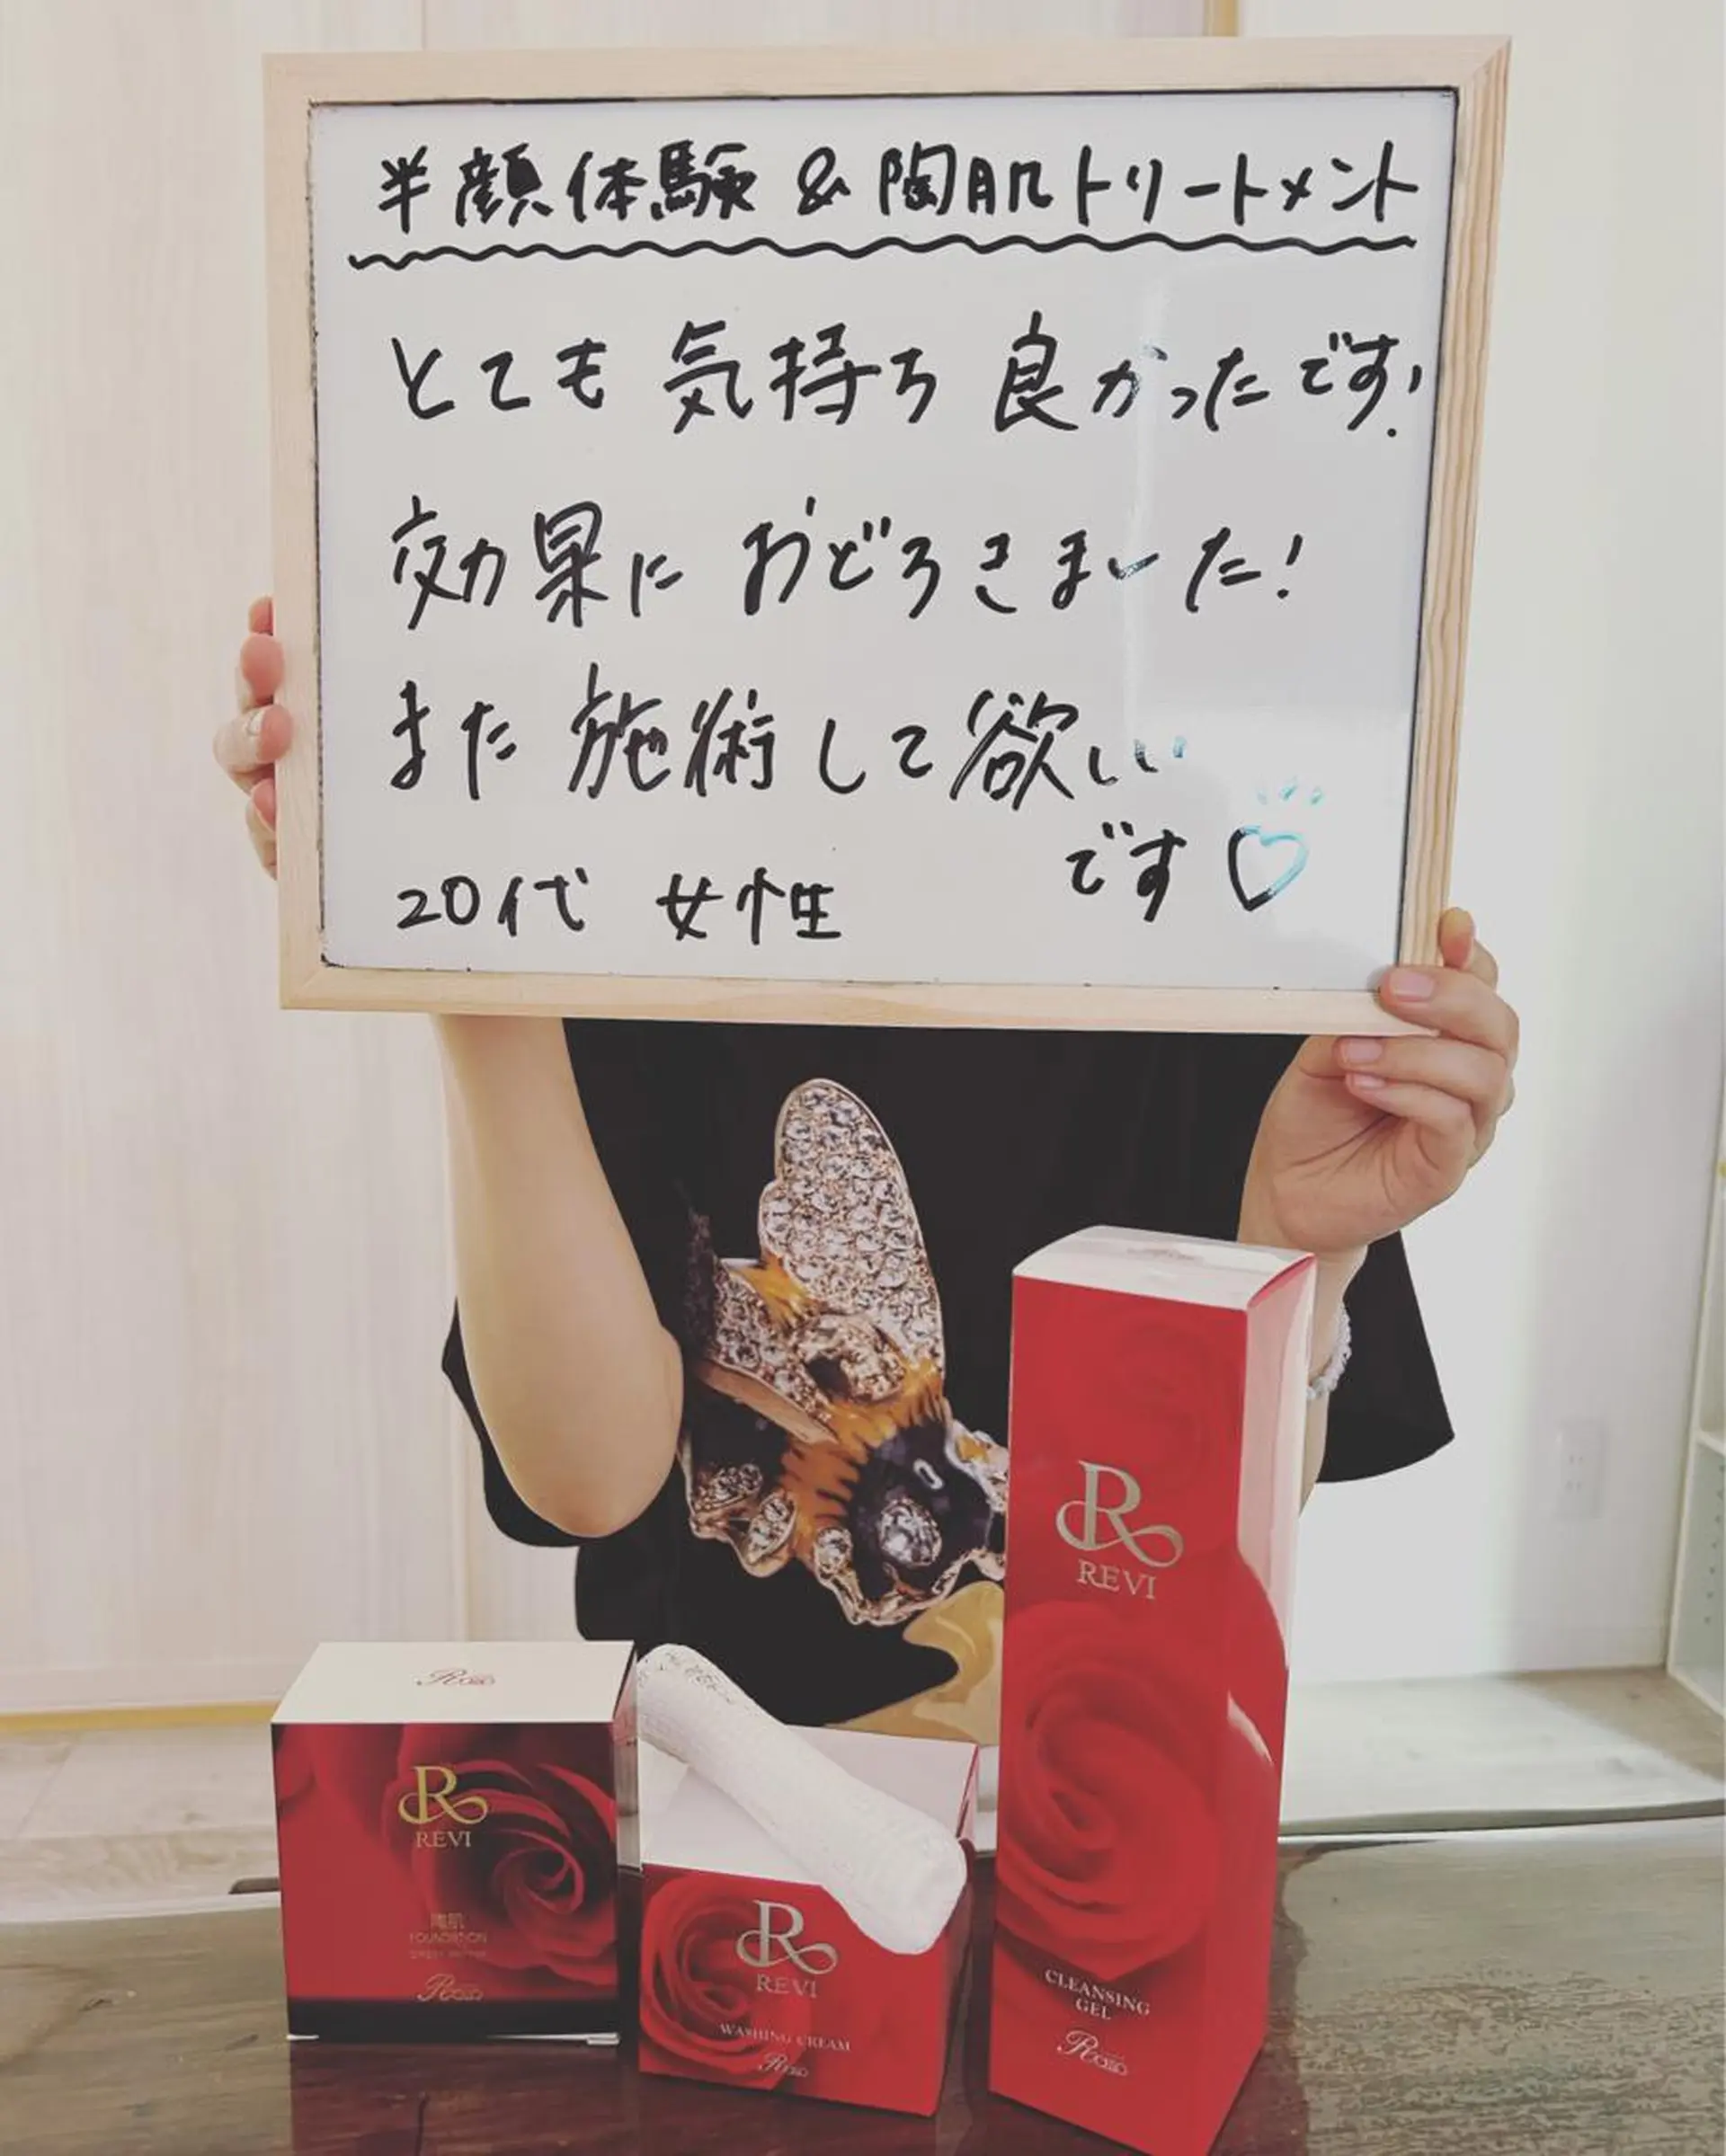 半顔体験 & 陶肌トリートメント
とても 気持ち 良かったです!
効果に おどろきました!
また 施術して欲しい
です♡
20代 女性
R
REVI
CLEANSING
GEL
Rozo
Rozo
R
REVI
陶肌
FOUNDATION
Rozo
R
REVI
WASHING CREAM
Rozo